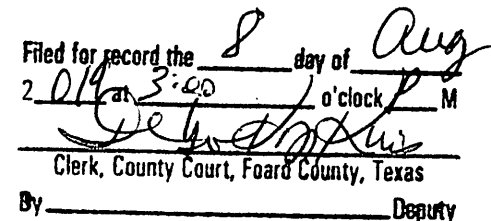 Filed for record the 8 day of Aug
2 019 at 3:00 o'clock P M
Clerk, County Court, Foard County, Texas
By Deputy